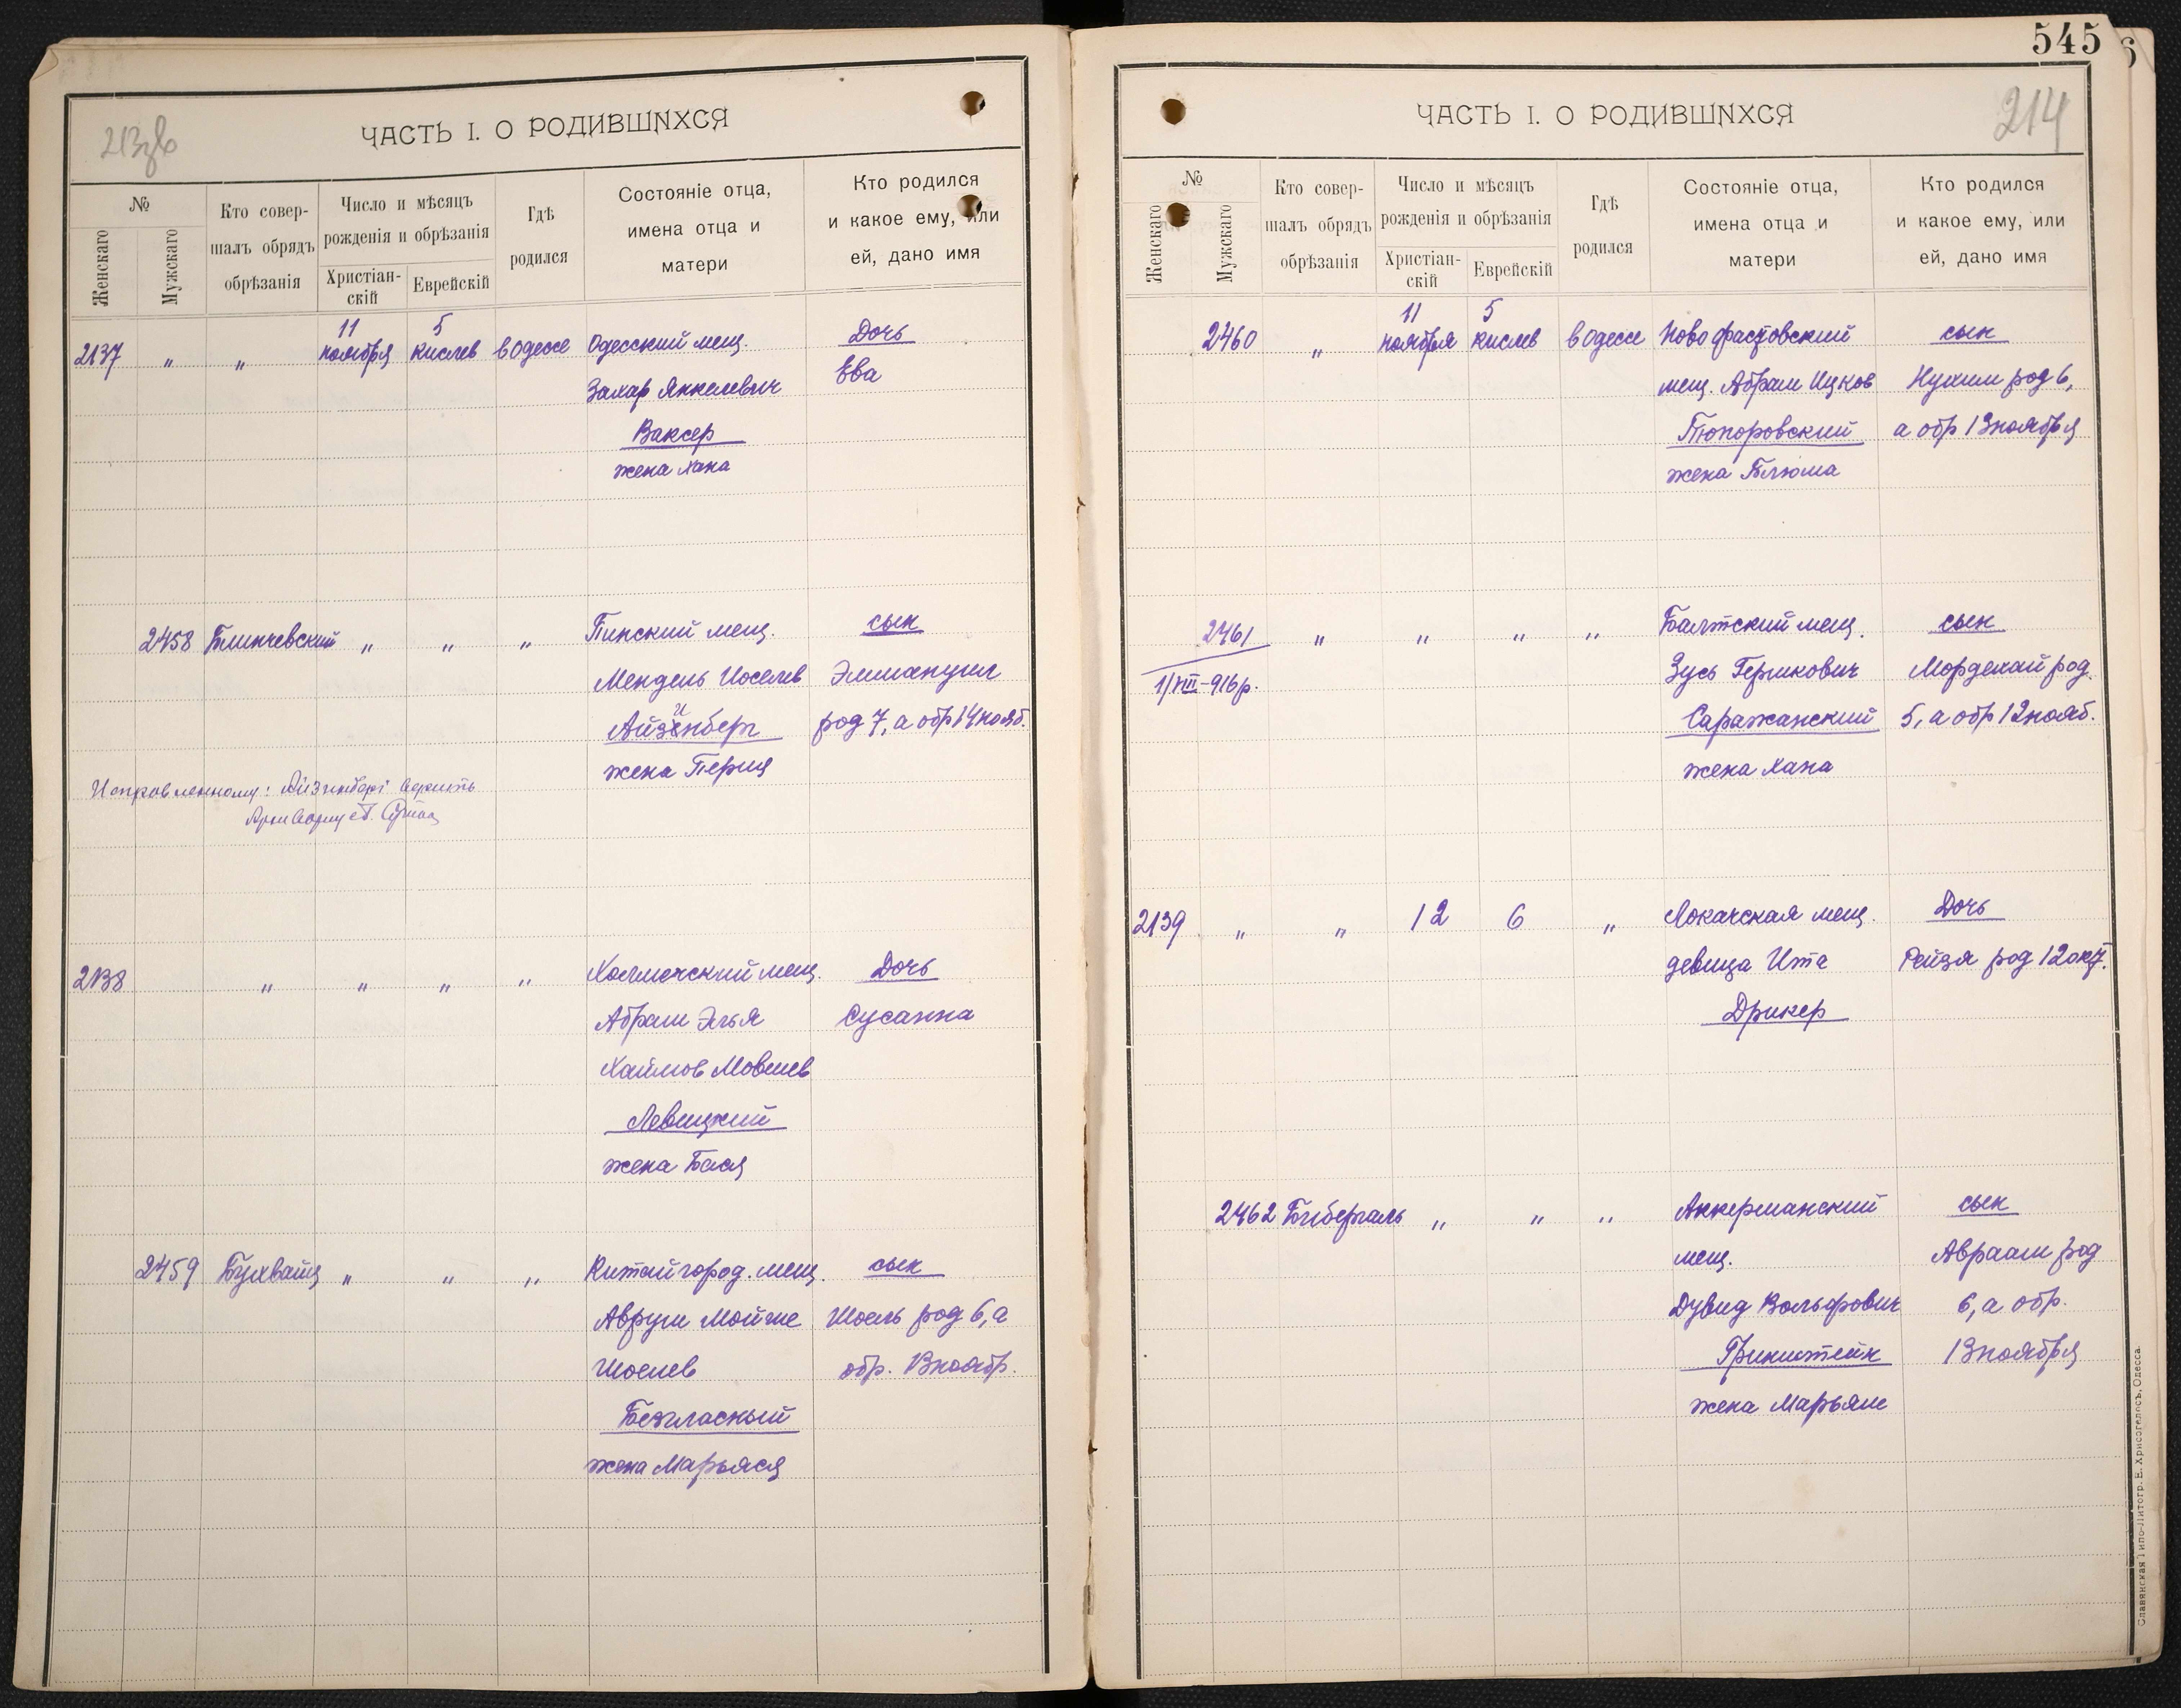 213 об
ЧАСТЬ I. О РОДИВШИХСЯ
№
Женскаго
Мужскаго
Кто совер-
шалъ обрядъ
обрѣзанія
Число и мѣсяцъ
рожденія и обрѣзанія
Христіан-
скій
Еврейскій
Гдѣ
родился
Состояніе отца,
имена отца и
матери
Кто родился
и какое ему, или
ей, дано имя
11 5
2137 „ „ ноября кислев в Одессе Одесский мещ. Дочь
Захар Янкелевич Ева
Ваксер
жена Хана
2458 Блинчевский „ „ „ Пинский мещ. сын
Мендель Иоселев Эммануил
и
Айзенберг род 7, а обр 14 нояб.
жена Периц
Исправленному: Айзинберг верить
2138 „ „ „ „ Хасмечский мещ. Дочь
Абрам Элья Сусанна
Хаимов Мовшев
Левицкий
жена Бася
2459 Бухвайц „ „ „ Китайгород. мещ. сын
Аврум Мойше Шоель род 6, а
Шоелев обр. 13 ноябр.
Безгласный
жена Марьяся
545
214
ЧАСТЬ I. О РОДИВШИХСЯ
№
Женскаго
Мужскаго
Кто совер-
шалъ обрядъ
обрѣзанія
Число и мѣсяцъ
рожденія и обрѣзанія
Христіан-
скій
Еврейскій
Гдѣ
родился
Состояніе отца,
имена отца и
матери
Кто родился
и какое ему, или
ей, дано имя
11 5
2460 „ ноября кислев в Одессе Новофастовский сын
мещ. Абрам Ицков Нухим род 6,
Тюпоровский а обр 13 ноября
жена Блюма
2461 „ „ „ „ Балтский мещ. сын
1/VIII-916 р. Зусь Гершкович Мордехай род.
Саражанский 5, а обр 12 нояб.
жена Хана
2139 „ „ 12 6 „ Локачская мещ. Дочь
девица Ита Рейзя род 12 окт.
Дрикер
2462 Бибергаль „ „ „ Аккерманский сын
мещ. Авраам род
Дувид Вольфович 6, а обр.
Гринштейн 13 ноября
жена Марьям
Славянская Типо-Литогр. Е. Хрисогелосъ, Одесса.